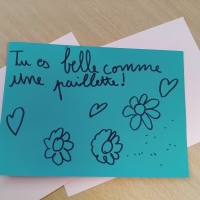 Tu es belle comme
une paillette!